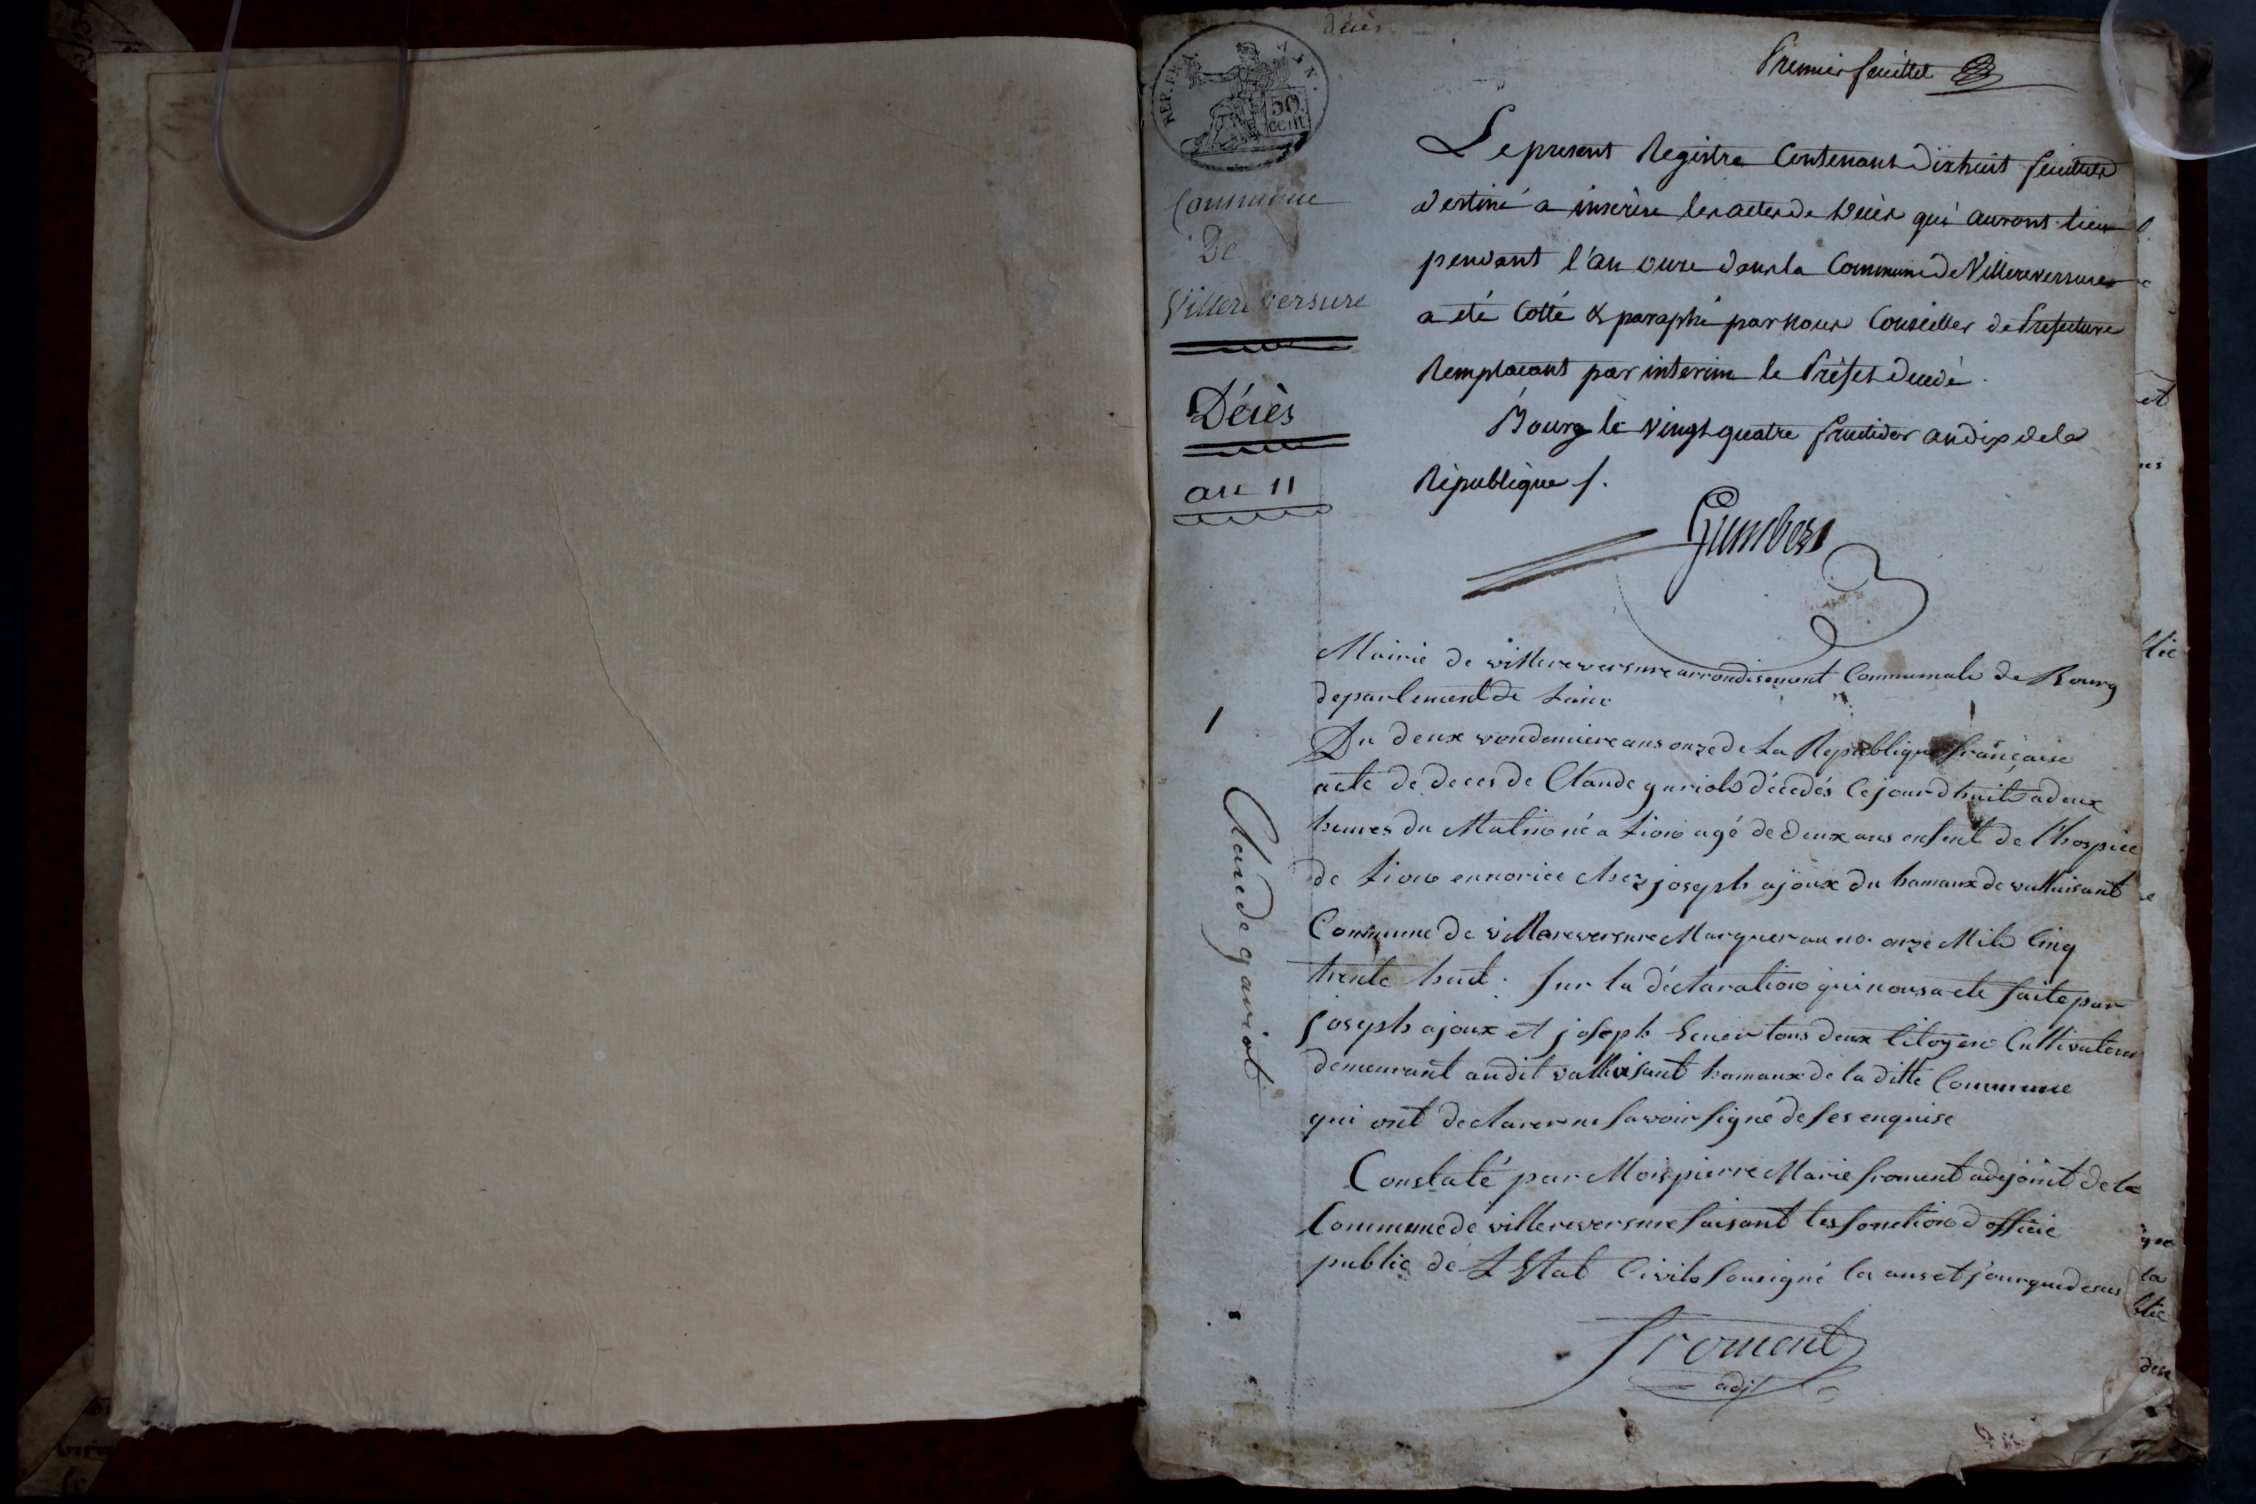 décès
Premier feuillet
REP. FRA
50
cent
Commune
De
Villereversure
Décès
an 11
Le present Registre Contenant dixhuit feuillets
destiné a inserire les actes de Décès qui auront lieu
pendant l'an onze dans la Commune de Villereversure
a été Cotté & paraphé par nous Conseiller de Prefecture
Remplacant par interim le Préfet decedé.
Bourg le vingt quatre fructidor an dix de la
République
Mairie de villereversure arrondisement Communale de Bourg
departement de Lain
Du deux vendemiere ans onze de La Republique française
acte de deces de Claude gariot décedés Cejourdhuit a deux
heures du Matin né a Lion agé de deux ans enfent de l'hospice
de Lion ennorice chez joseph ajoux du hamaux de valluisant
Commune de villereversure Marquer au no. onze Mile Cinq
trente huit. Sur la déclaration qui nous a ete faite par
joseph ajoux et joseph tous deux Citoyen Cultivateur
demeurant audit valluisant hamaux de la ditte Commune
qui ont declarer ne savoir signé de ses enquise
Constaté par Moi pierre Marie froment adejoint de la
Commune de villereversure faisant les fonction d officie
public de L Etat Civil Sousigné les ans et jour que desus
froment
adjt
1
Claude gariot